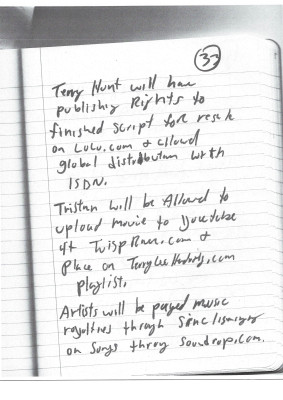 33
Terry Hunt will have
publishing Rights to
finished script for resale
on Lulu.com & allowd
global distribution with
ISDN.
Tristan will be Allowed to
upload movie to youtube
at .com &
Place on .com
playlist.
Artists will be payed music
royalties through
on songs throug Soundrop.com.